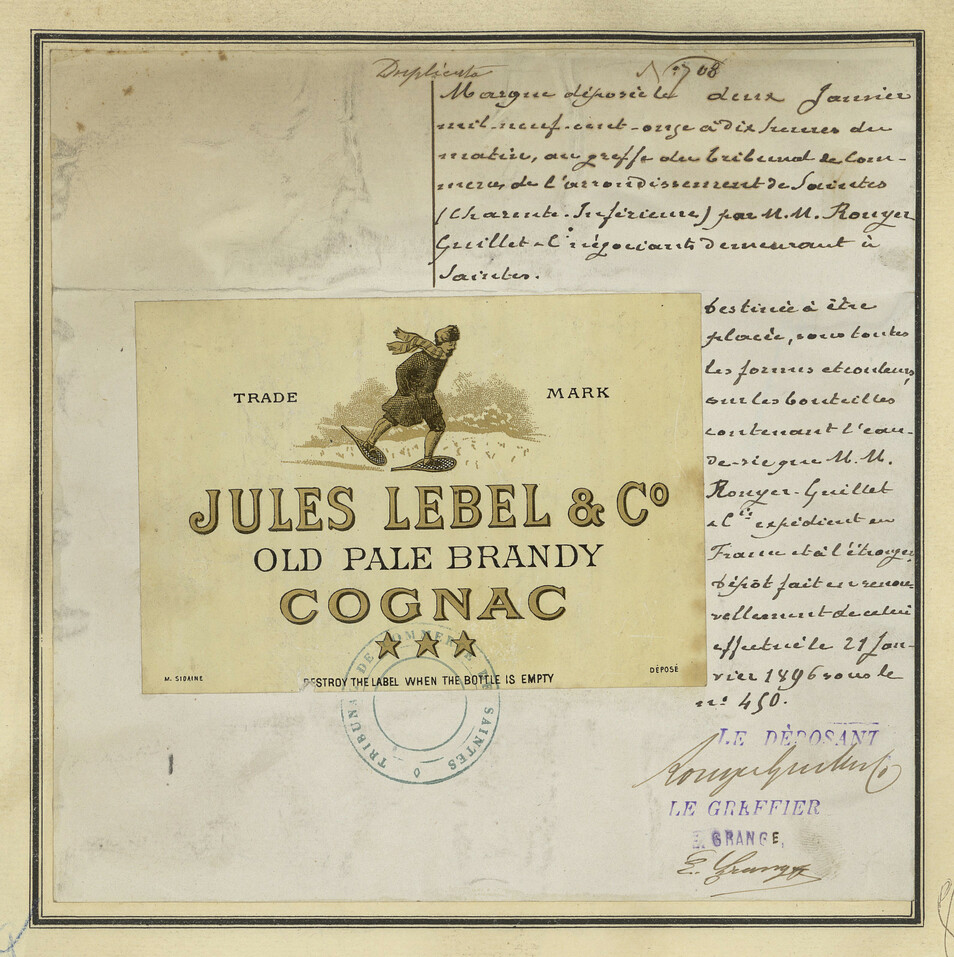 Duplicata
N° 1708
Marque déposée le deux Janvier
mil-neuf-cent-onze à dix heures du
matin, au greffe du tribunal de Com-
merce de l'arrondissement de Saintes
(Charente-Inférieure) par M.M. Rouyer
Guillet & Cie négociants demeurant à
Saintes.
Destinée à être
placée, sous toutes
les formes et couleurs,
sur les bouteilles
contenant l'eau-
de-vie que M.M.
Rouyer-Guillet
& Cie expédient en
France et à l'étranger
Dépôt fait en renou-
vellement de celui
effectué le 21 Jan-
vier 1896 sous le
n° 450.
TRADE MARK
JULES LEBEL & Co
OLD PALE BRANDY
COGNAC
M. SIDAINE
DESTROY THE LABEL WHEN THE BOTTLE IS EMPTY
DÉPOSÉ
TRIBUNAL DE COMMERCE DE SAINTES
LE DÉPOSANT
Rouyer Guillet & Co
LE GREFFIER
E. GRANGE,
E. Grange